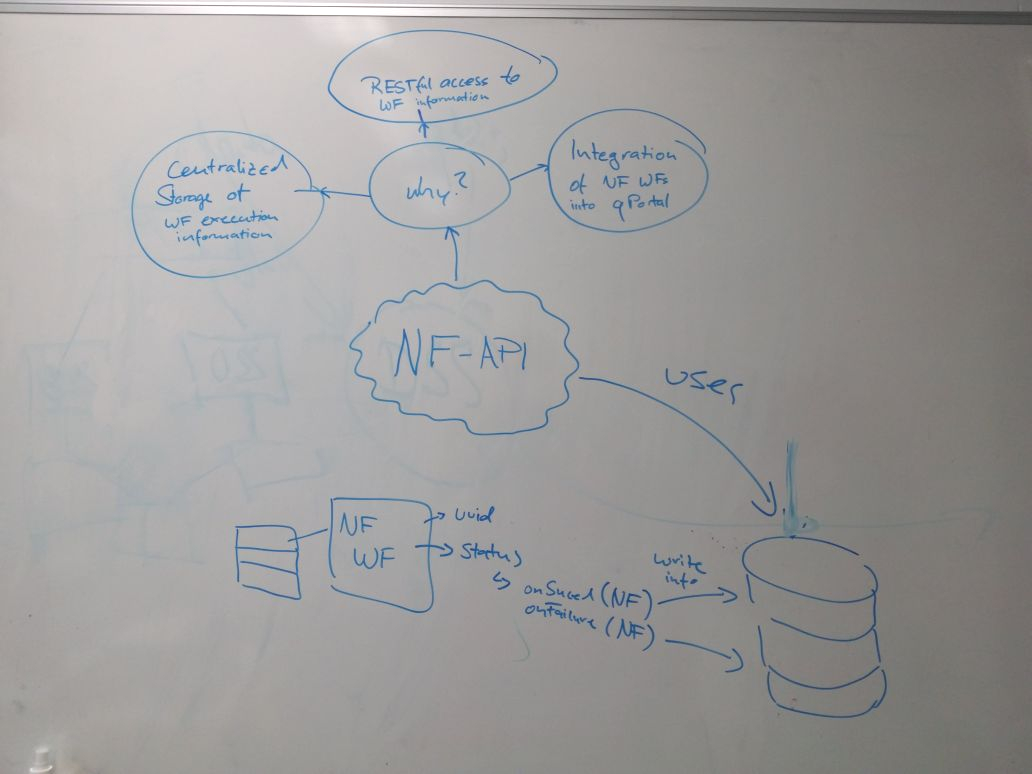 RESTful access to
WF information
Centralized
Storage of
WF execution
information
why?
Integration
of NF WFs
into qPortal
NF-API
uses
NF
WF
uuid
Status
onSucced (NF)
onFailure (NF)
write
info